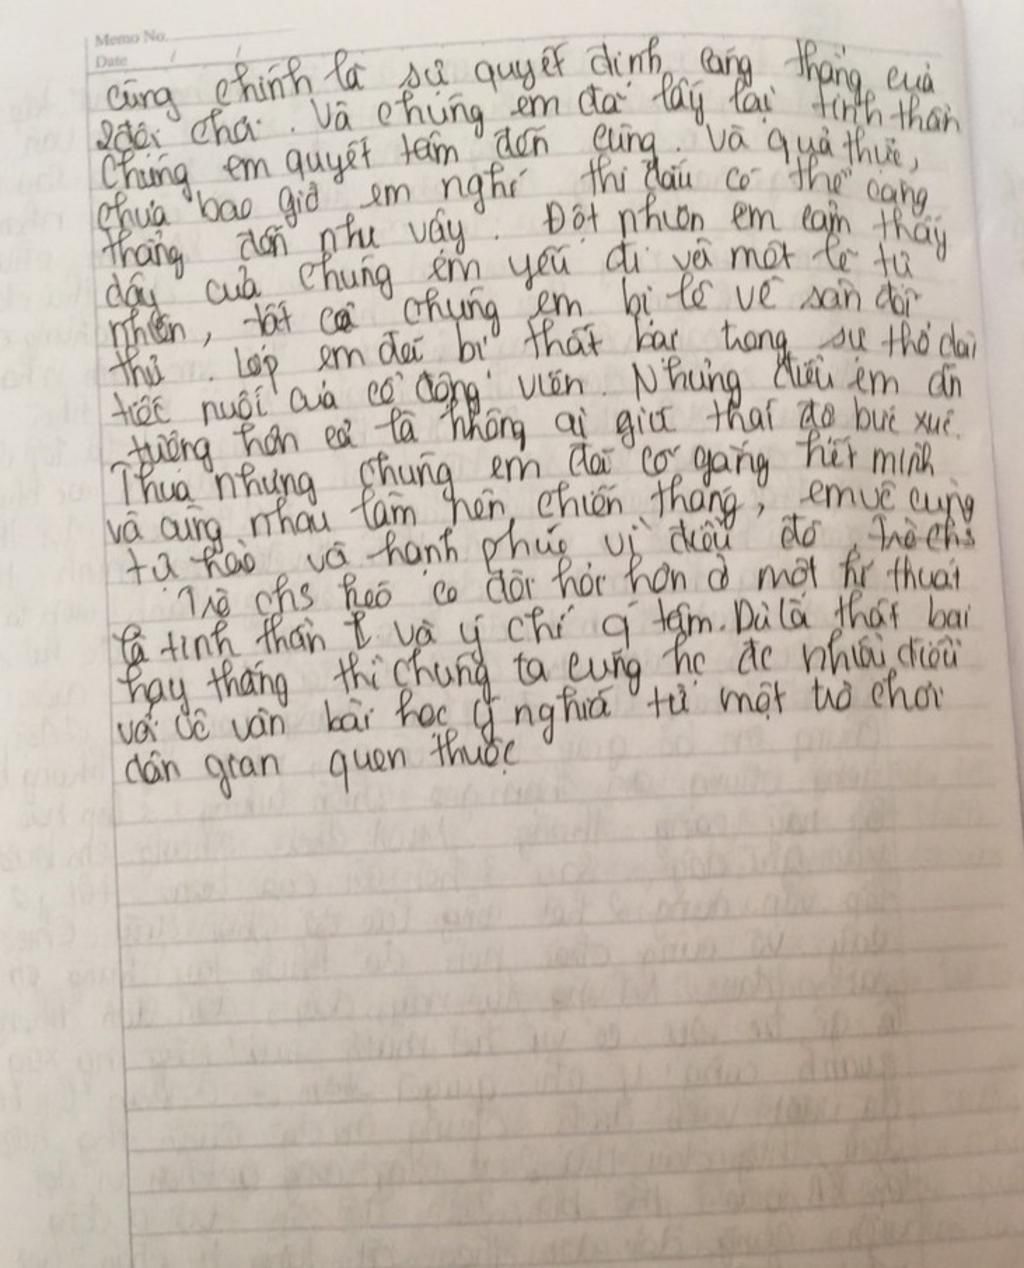 Memo No.
Date / /
cũng chính là sự quyết định căng thẳng của
2 đội chơi. Và chúng em đã lấy lại tinh thần
Chúng em quyết tâm đến cùng. Và quả thực,
chưa bao giờ em nghĩ thi đấu có thể căng
thẳng đến như vậy. Đột nhiên em cảm thấy
dây của chúng em yếu đi và một lẽ tự
nhiên, tất cả chúng em bị té về sân đối
thủ. Lớp em đã bị thất bại trong sự thở dài
tiếc nuối của cổ động viên. Nhưng điều em ấn
tượng hơn cả là không ai giữ thái độ bực xúc.
Thua nhưng chúng em đã cố gắng hết mình
và cùng nhau làm nên chiến thắng, em vô cùng
tự hào và hạnh phúc vì điều đó. Trò chs
Trò chs kéo co đòi hỏi hơn ở một kĩ thuật
là tinh thần và ý chí q tâm. Dù là thất bại
hay thắng thì chúng ta cũng hc đc nhiều điều
và vô vàn bài học ý nghĩa từ một trò chơi
dân gian quen thuộc